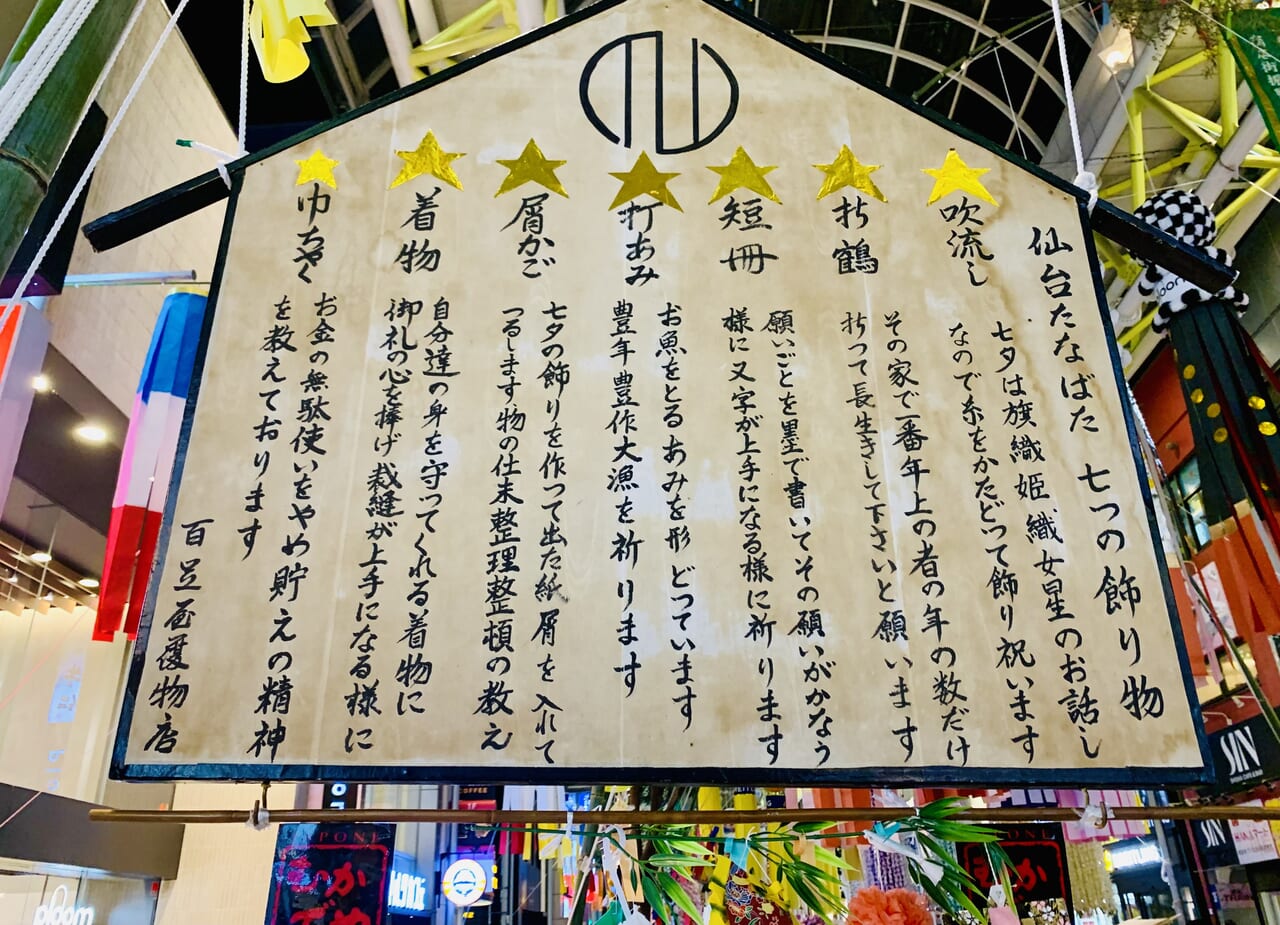 仙台たなばた 七つの飾り物
吹流し
七夕は旗織姫織女星のお話し
なので糸をかたどって飾り祝います
折鶴
その家で一番年上の者の年の数だけ
折って長生きして下さいと願います
短冊
願いごとを墨で書いてその願いがかなう
様に又字が上手になる様に祈ります
打あみ
お魚をとるあみを形どっています
豊年豊作大漁を祈ります
屑かご
七夕の飾りを作って出た紙屑を入れて
つるします、物の仕末整理整頓の教え
着物
自分達の身を守ってくれる着物に
御礼の心を捧げ裁縫が上手になる様に
巾ちゃく
お金の無駄使いをやめ貯えの精神
を教えております
百足屋履物店
SIN
SIN
COFFEE
ploom